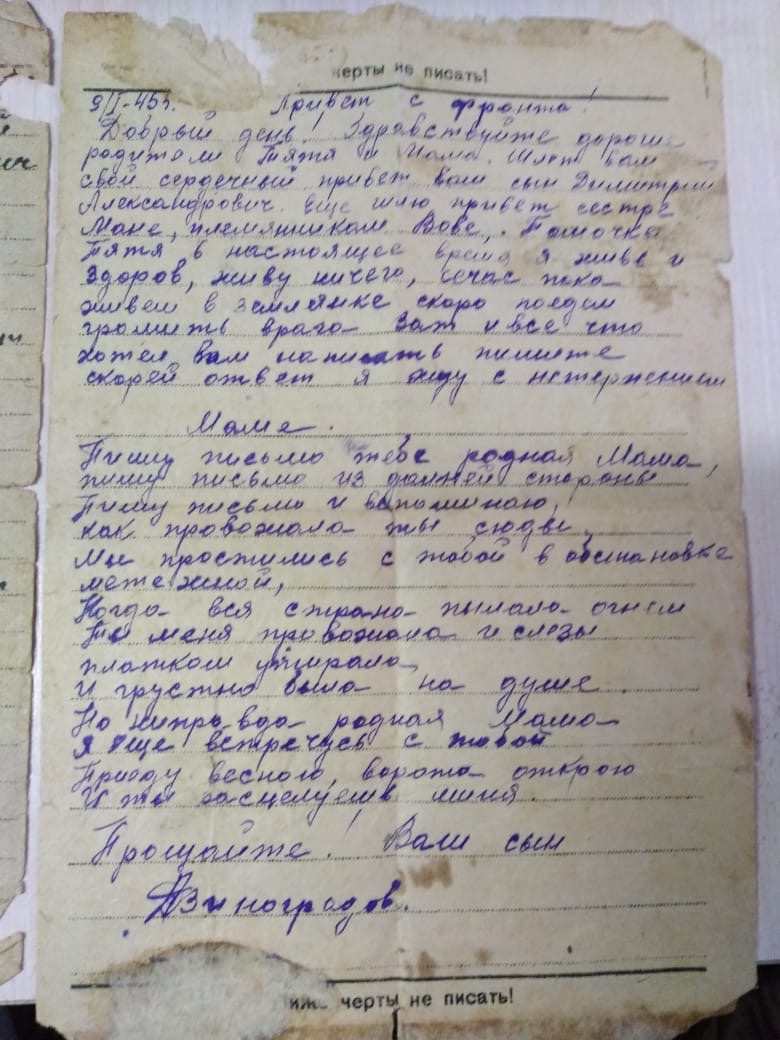 черты не писать!
9/I-45г. Привет с фронта!
Добрый день! Здравствуйте дорогие
родители Тятя и Мама. Шлет вам
свой сердечный привет ваш сын Димитрий
Александрович. Еще шлю привет сестре
Мане, племянникам Вове, Томочке
Тятя в настоящее время я жив и
здоров, живу ничего, сечас пока
живем в землянке скоро поедем
громить врага. Вот и все что
хотел вам написать пишите
скорей ответ я жду с нетержением
Маме.
Пишу письмо тебе родная Мама,
пишу письмо из далней стороны
Пишу письмо и вспоминаю,
как провожала ты сюды.
Мы простились с тобой в обстановке
метежной,
Когда вся страна пылала огнем
Ты меня провожала и слезы
платком утирала
И грустно была на душе.
Но нипровда родная Мама
я еще встречусь с тобой
Приеду весною, ворота открою
И ты расцелуешь миня.
Прощайте! Ваш сын
ДВиноградов.
иже черты не писать!